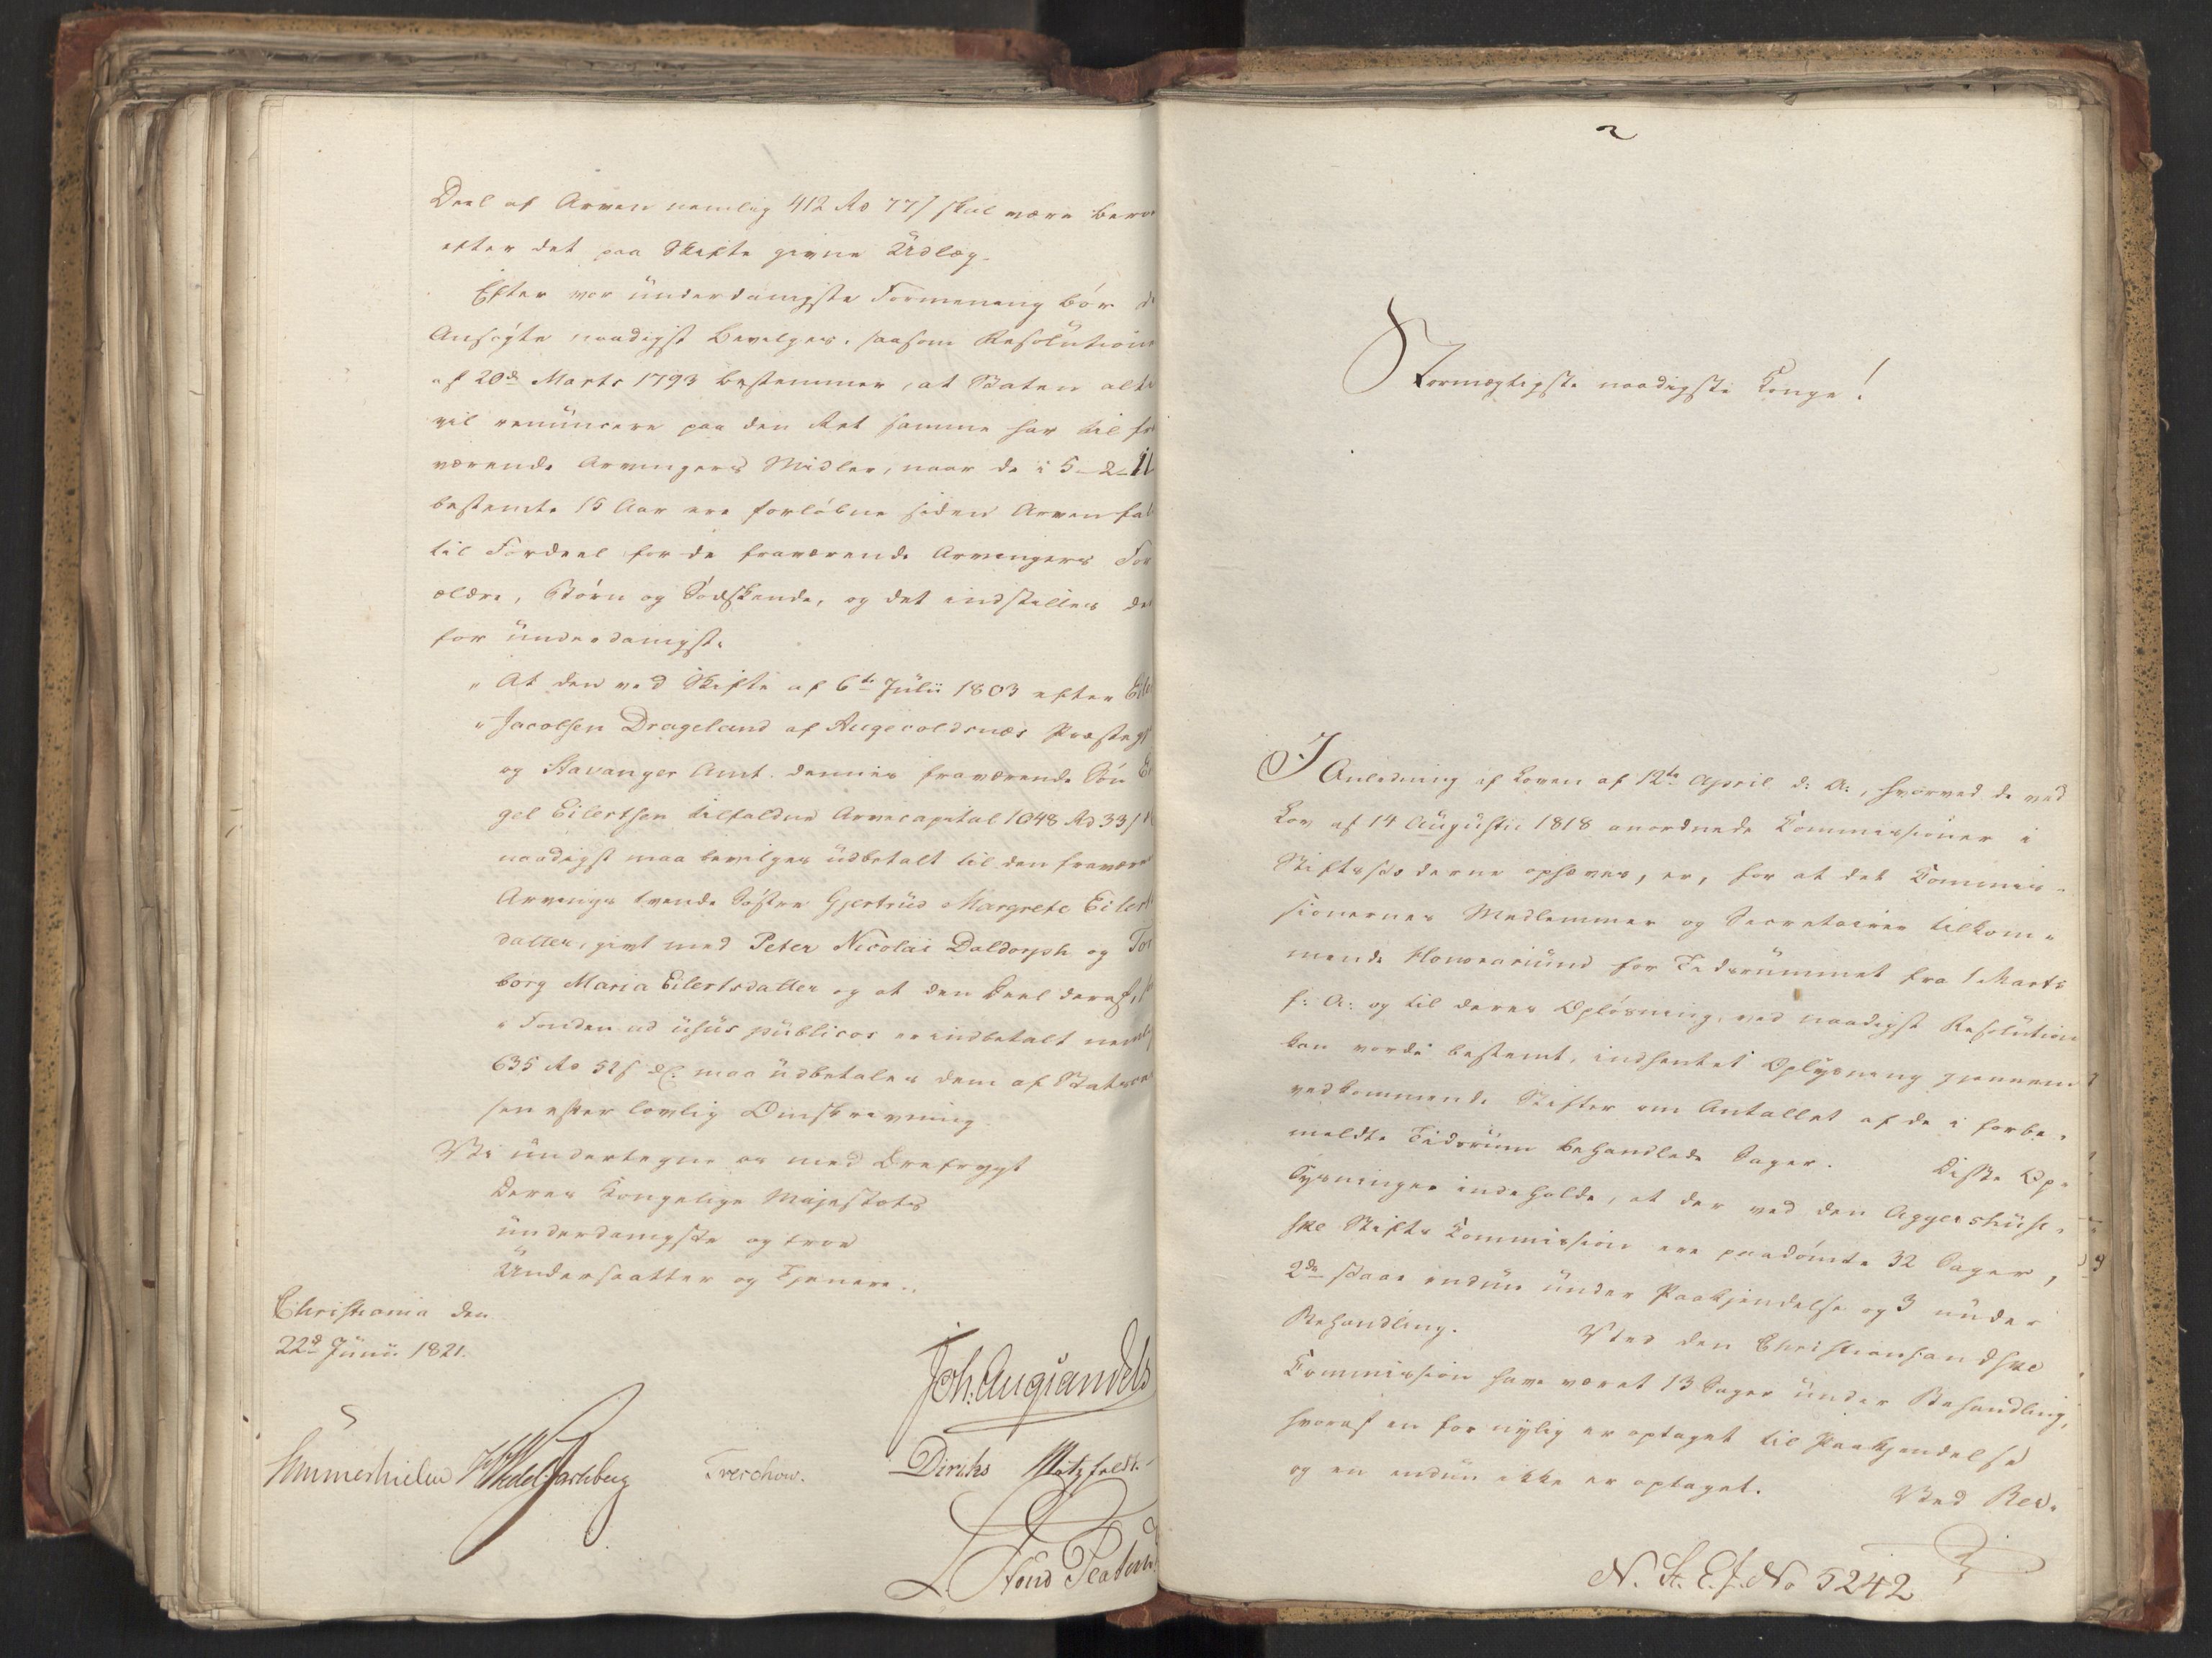 Deel af Arven nemlig 412 Rd 77 s skal være bero
efter det paa Skifte givne Udlæg.
Efter vor underdanigste Formening bør d
Ansøgte naadigst bevilges, saasom Resolution
af 20de Marts 1793 bestemmer, at Staten alti
vil renuncere paa den Ret samme har til fra
værende Arvingers Midler, naar de i 5-2-11
bestemte 15 Aar ere forløbne siden Arven fal
til Fordeel for de fraværende Arvingers For
ældre, Børn og Sødskende, og det indstilles der
for underdanigst.
" At den ved Skifte af 6te Julii 1803 efter Eiler
" Jacobsen Drageland af Augvoldsnæs Præstegj
og Stavanger Amt. dennes fraværende Søn En
gel Eilertsen tilfaldne Arvecapital 1048 Rd 33 s
naadigst maa bevilges udbetalt til den fravære
Arvings tvende Søstre Gjertrud Margrete Eilerts
datter, givt med Peter Nicolai Daldorph og Tor
borg Maria Eilertsdatter og at den Deel deraf,
" Fonden ad usus publicos er indbetalt nemlig
635 Rd 52 s maa udbetales dem af Statscas
sen efter lovlig Omskrivning.
Vi undertegne os med Ærefrygt
Deres Kongelige Majestæts
underdanigste og troe
Undersaatter og Tjenere.
Christiania den
22d Junii 1821.
Joh. Aug Sandels
Sommerhielm HWedel Jarlsberg Treschow. Diriks Motzfeldt.
L. Stoud Platou
2
Stormægtigste naadigste Konge!
I Anledning af Loven af 12te April d: A:, hvorved de ved
Lov af 14 Augustii 1818 anordnede Commissioner i
Stiftsstæderne ophæves, er, for at det Commis-
sionernes Medlemmer og Secretairer tilkom-
mende Honorarium for Tidsrummet fra 1 Marts
f: A: og til deres Opløsning, ved naadigst Resolution
kan vorde bestemt, indhentet Oplysning gjennem
vedkommende Stifter om Antallet af de i forbe-
meldte Tidsrum behandlede Sager. Disse Op-
lysninger indeholde, at der ved den Aggershuus-
ske Stifts Commission ere paadømte 32 Sager,
2de staae endnu under Paakjendelse og 3 under
Behandling. Ved den Christiansandske
Commission have været 13 Sager under Behandling,
hvoraf en for nylig er optaget til Paakjendelse
og en endnu ikke er optaget. Ved Ber-
N. St. E. J. No 5242